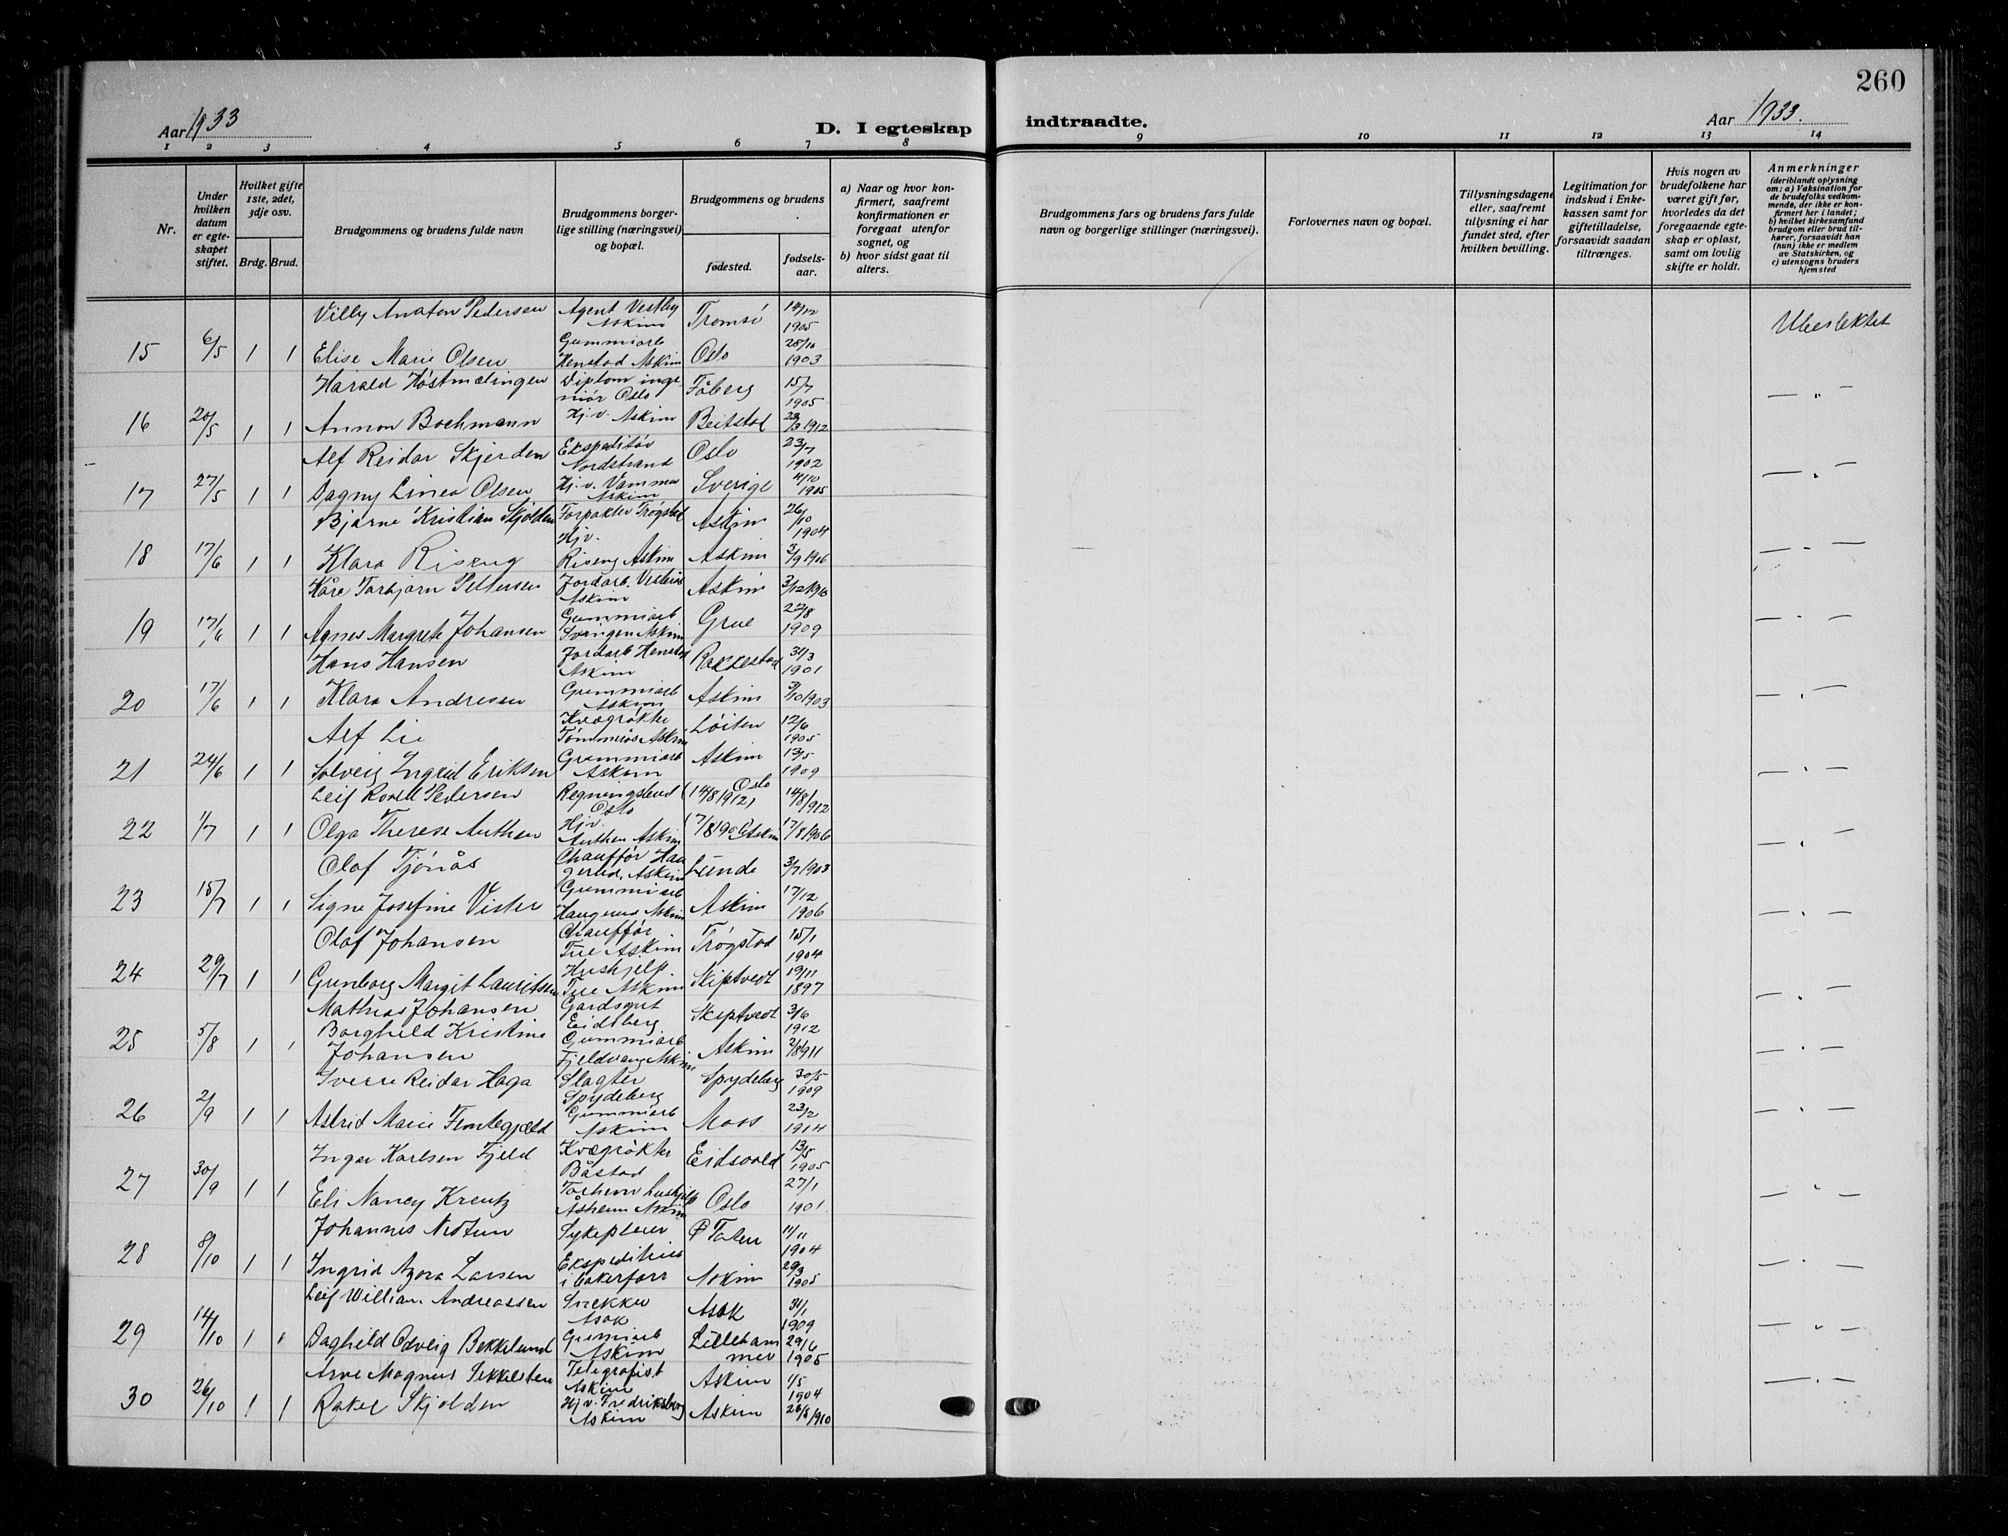 260
Aar 1933
D. I egteskap
indtraadte.
Aar 1933.
1 2 3 4 5 6 7 8 9 10 11 12 13 14
Nr.
Under hvilken datum er egteskapet stiftet.
Hvilket gifte 1ste, 2det, 3dje osv.
Brdg. Brud.
Brudgommens og brudens fulde navn
Brudgommens borgerlige stilling (næringsvei) og bopæl.
Brudgommens og brudens
fødested.
fødselsaar.
a) Naar og hvor konfirmert, saafremt konfirmationen er foregaat utenfor sognet, og
b) hvor sidst gaat til alters.
Brudgommens fars og brudens fars fulde navn og borgerlige stillinger (næringsvei).
Forlovernes navn og bopæl.
Tillysningsdagene eller, saafremt tillysning ei har fundet sted, efter hvilken bevilling.
Legitimation for indskud i Enkekassen samt for giftetilladelse, forsaavidt saadan tiltrænges.
Hvis nogen av brudefolkene har været gift før, hvorledes da det foregaaende egteskap er opløst, samt om lovlig skifte er holdt.
Anmerkninger
(deriblandt oplysning om: a) Vaksination for de brudefolks vedkommende, der ikke er konfirmert her i landet; b) hvilket kirkesamfund brudgom eller brud tilhører, forsaavidt han (hun) ikke er medlem av Statskirken, og c) utensogns bruders hjemsted
Villy Anaton Pedersen Agent Vestby Askim Tromsö 14/12 1905
15 6/5 1 1 Elise Marie Olsen Gummiarb Henstad Askim Oslo 25/10 1903 Ubeslektet
Harald Høstmælingen Diplom ingeniør Oslo Fåberg 15/7 1905
16 20/5 1 1 Annon Bochmann Hj.v. Askim Beitstad 1912 — " —
Alf Reidar Skjerden Ekspeditør Nordstrand Oslo 23/7 1902
17 27/5 1 1 Dagny Linea Olsen Hj.v. Vamma Askim Sverige 4/10 1905 — " —
Bjarne Kristian Skjolden Forpakter Trøgstad Askim 26/10 1904
18 17/6 1 1 Klara Riseng Hjv. Riseng Askim Askim 3/9 1906 — " —
Kåre Torbjørn Pettersen Jordarb. Askim Askim
19 17/6 1 1 Agnes Margrete Johansen Gummiarb Svingen Askim Grue 22/8 1909 — " —
Hans Hansen Jordarb Henstad Askim Rakkestad 31/3 1901
20 17/6 1 1 Klara Andresen Gummiarb Askim Askim 3/10 1903 — " —
Alf Lie Kvægrøkter Tømmerås Askim Löiten 12/6 1905
21 24/6 1 1 Solveig Ingrid Eriksen Gummiarb Askim Askim 13/5 1909 — " —
Leif Pedersen Regningsbud Oslo (14/8 1912) Oslo 14/8 1912
22 1/7 1 1 Olga Therese Authen Hjv. Authen Askim Askim 17/8 1906 — " —
Olaf Tjönås Chauffør Haugerud, Askim Lunde 3/7 1903
23 15/7 1 1 Signe Josefine Vister Gummiarb Askim Askim 17/12 1906 — " —
Olaf Johansen Chauffør Tue Askim Trøgstad 15/1 1904
24 29/7 1 1 Gunborg Margit Lauritsen Hushjelp Tue Askim Skiptvedt 19/11 1897 — " —
Mathias Johansen Gardsgut Eidsberg Skiptvedt 3/6 1912
25 5/8 1 1 Borghild Kristine Johansen Gummiarb Fjeldvang Askim Askim 2/8 1911 — " —
Sverre Reidar Haga Slagter Spydeberg Spydeberg 30/5 1909
26 2/9 1 1 Astrid Marie Flintegjæld Gummiarb Askim Moss 23/2 1914 — " —
Ingar Karlsen Fjeld Kvægrøkter Båstad Eidsvold 13/5 1905
27 30/9 1 1 Eli Nancy Kreutz Åsheim Askim Oslo 27/1 1901 — " —
Johannes Nedtun Sykepleier 1904
28 8/10 1 1 Ingrid Azora Larsen Ekspeditrise i bakerforr Askim 29/3 1905 — " —
Leif William Andreassen Snekker Asak Asak 31/1 1909
29 14/10 1 1 Daghild Odveig Bekkelund Gumiarb Askim Lillehammer 29/6 1905 — " —
Arne Magnus Sekkelsten Telegrafist Askim Askim 1/5 1904
30 26/10 1 1 Rakel Skjolden Hjv. Fredriksberg Askim Askim 26/8 1910 — " —